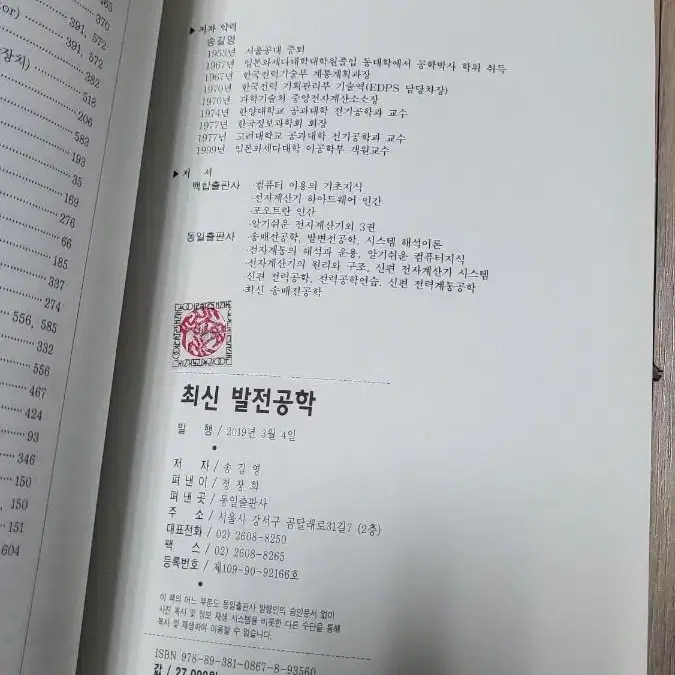 465
370
or)
391, 572
391, 572
장치)
382
518
206
583
193
35
169
276
66
185
337
274
556, 585
332
556
467
424
93
346
150
, 150
151
604
▶ 저자 약력
송길영
1953년 서울공대 중퇴
1967년 일본와세다대학대학원졸업 동대학에서 공학박사 학위 취득
1967년 한국전력기술부 계통계획과장
1970년 한국전력 기획관리부 기술역(EDPS 담당차장)
1970년 과학기술처 중앙전자계산소소장
1974년 한양대학교 공과대학 전기공학과 교수
1977년 한국정보과학회 회장
1977년 고려대학교 공과대학 전기공학과 교수
1999년 일본와세다대학 이공학부 객원교수
▶ 저 서
백합출판사 ·컴퓨터 이용의 기초지식
·전자계산기 하아드웨어 인간
·포오트란 인간
·알기쉬운 전자계산기외 3권
동일출판사 ·송배전공학, 발변전공학, 시스템 해석이론
·전자계통의 해석과 운용, 알기쉬운 컴퓨터지식
·전자계산기의 원리와 구조, 신편 전자계산기 시스템
·신편 전력공학, 전력공학연습, 신편 전력계통공학
·최신 송배전공학
최신 발전공학
발 행 / 2019년 3월 4일
저 자 / 송길영
펴낸이 / 정창희
펴낸곳 / 동일출판사
주 소 / 서울시 강서구 곰달래로31길7 (2층)
대표전화 / 02) 2608-8250
팩 스 / 02) 2608-8265
등록번호 / 제109-90-92166호
이 책의 어느 부분도 동일출판사 발행인의 승인문서 없이
사진 복사 및 정보 재생 시스템을 비롯한 다른 수단을 통해
복사 및 재생하여 이용할 수 없습니다.
ISBN 978-89-381-0867-8-93560
값 / 27,000원